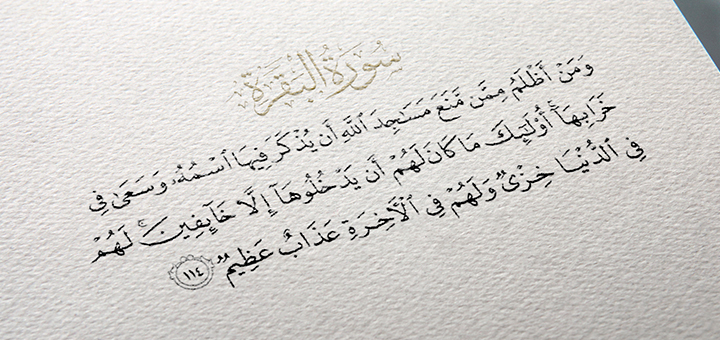 سُورَةُ البَقَرَةِ
وَمَنْ أَظْلَمُ مِمَّن مَّنَعَ مَسَاجِدَ اللَّهِ أَن يُذْكَرَ فِيهَا اسْمُهُ وَسَعَىٰ فِي
خَرَابِهَا ۚ أُولَٰئِكَ مَا كَانَ لَهُمْ أَن يَدْخُلُوهَا إِلَّا خَائِفِينَ ۚ لَهُمْ
فِي الدُّنْيَا خِزْيٌ وَلَهُمْ فِي الْآخِرَةِ عَذَابٌ عَظِيمٌ ١١٤